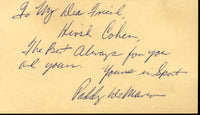 To My Dear Friend,
Hirsh Cohen,
The Best Always for you
and yours.
Yours in Sport
Paddy DeMarco